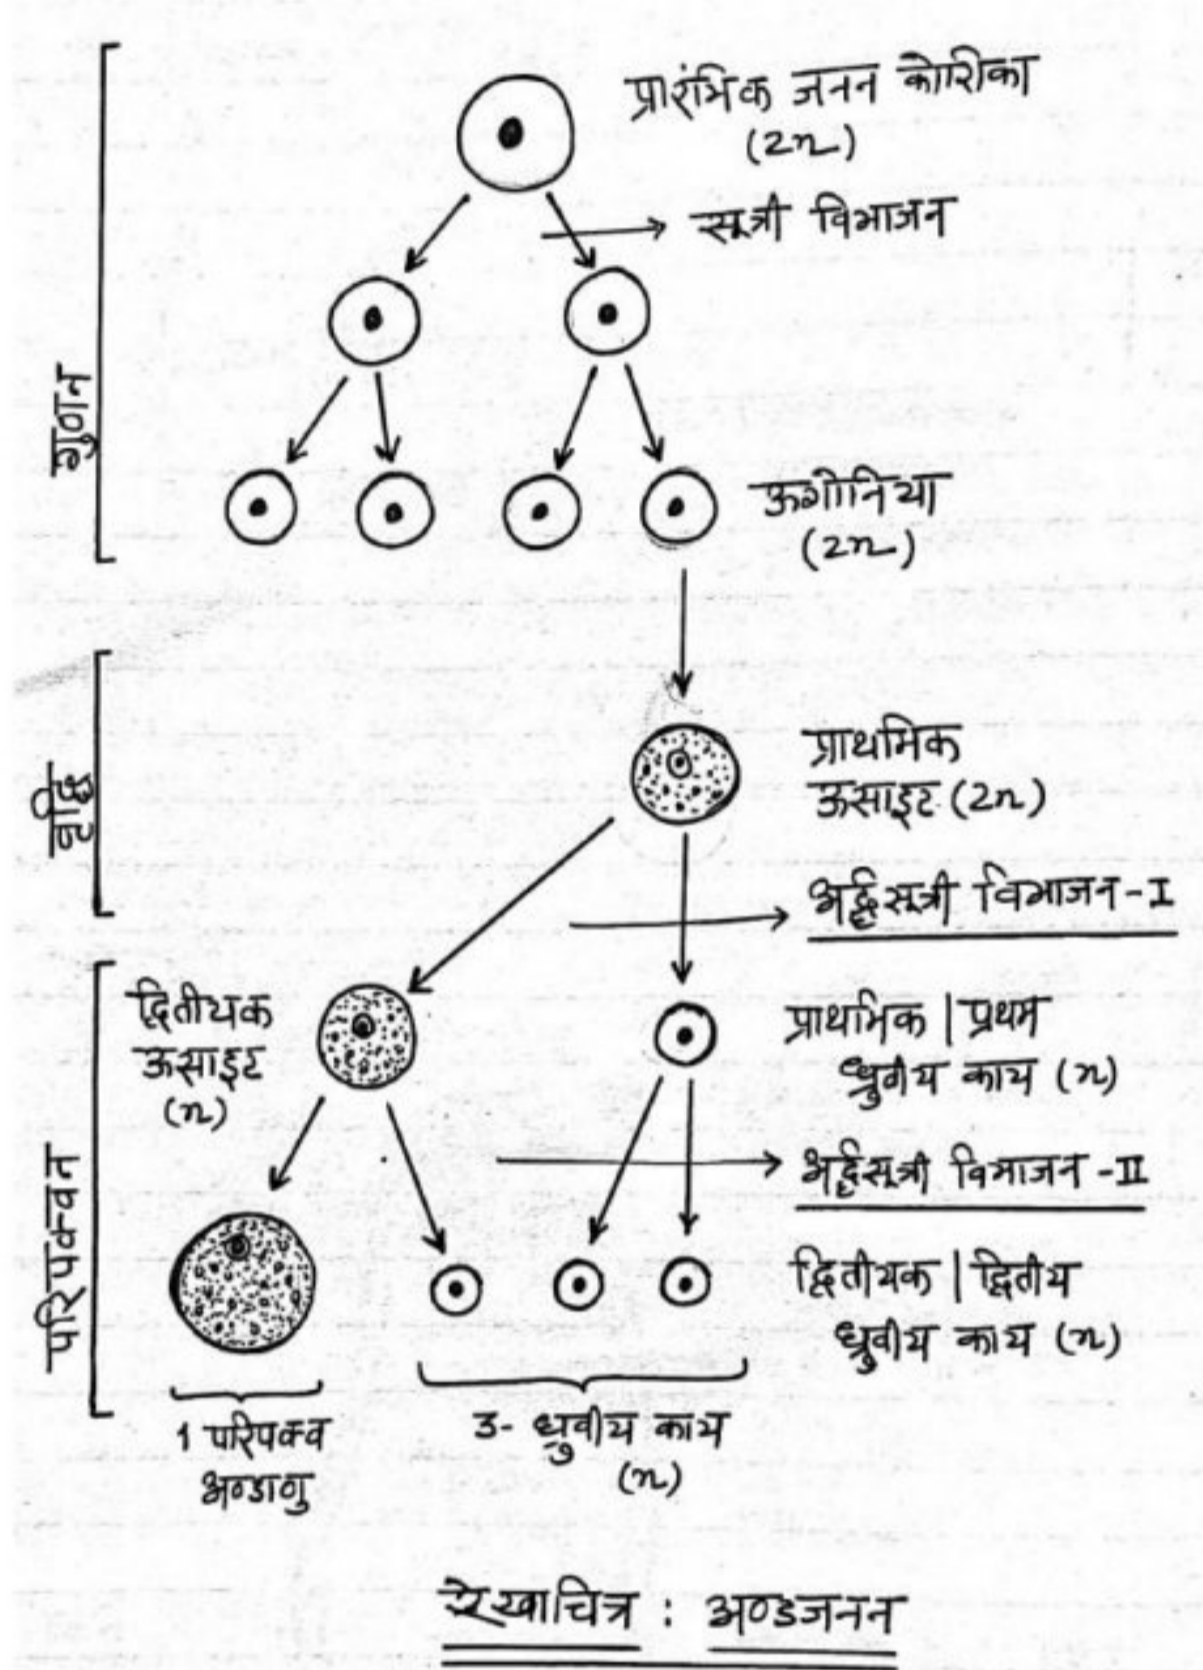 प्रारंभिक जनन कोशिका
(2n)
सूत्री विभाजन
गुणन
ऊगोनिया
(2n)
प्राथमिक
ऊसाइट (2n)
वृद्धि
अर्द्धसूत्री विभाजन-I
द्वितीयक
ऊसाइट
(n)
प्राथमिक | प्रथम
ध्रुवीय काय (n)
परिपक्वन
अर्द्धसूत्री विभाजन-II
द्वितीयक | द्वितीय
ध्रुवीय काय (n)
1 परिपक्व
अण्डाणु
3- ध्रुवीय काय
(n)
रेखाचित्र : अण्डजनन